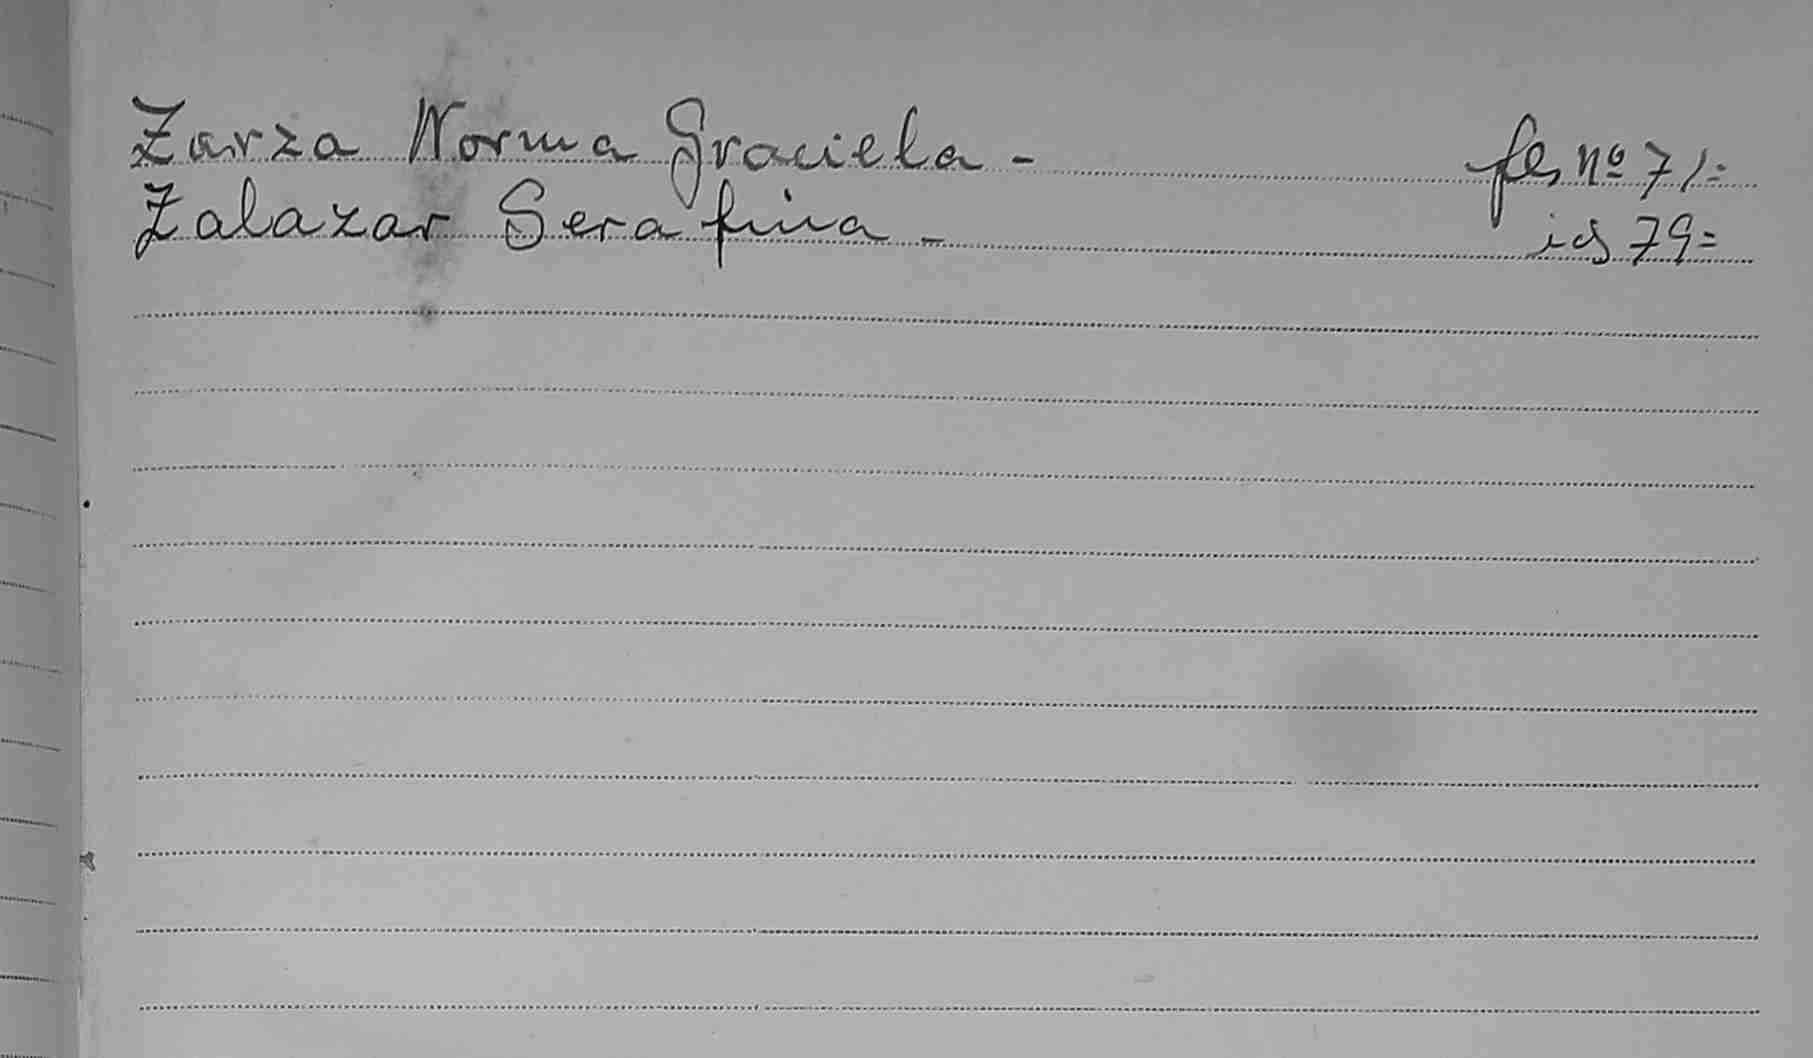 Zarza Norma Graciela - fls nº 71=
Zalazar Serafina - id 79=